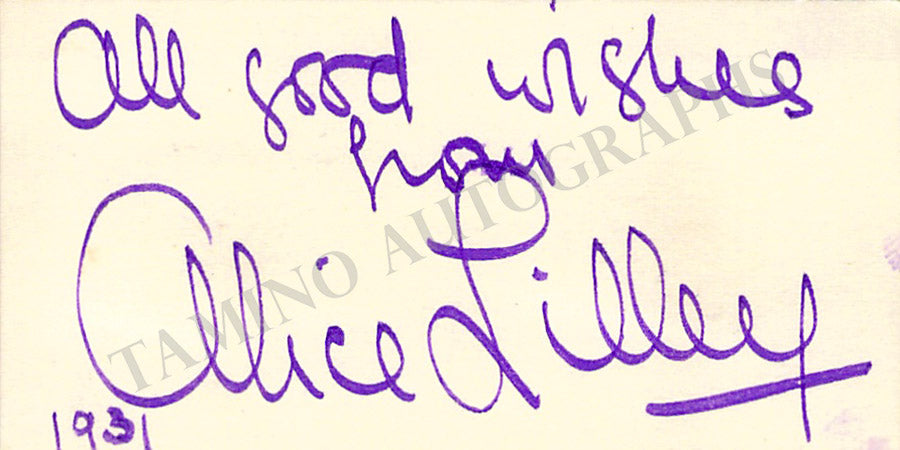 All good wishes
from
Alice Lilley
1931
TAMINO AUTOGRAPHS